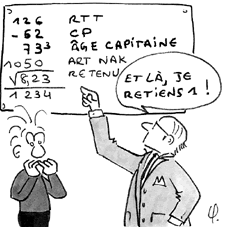 126 RTT
- 62 CP
73³ ÂGE CAPITAINE
1050 ART NAK
√8,23 RETENU
1234
ET LÀ, JE
RETIENS 1 !